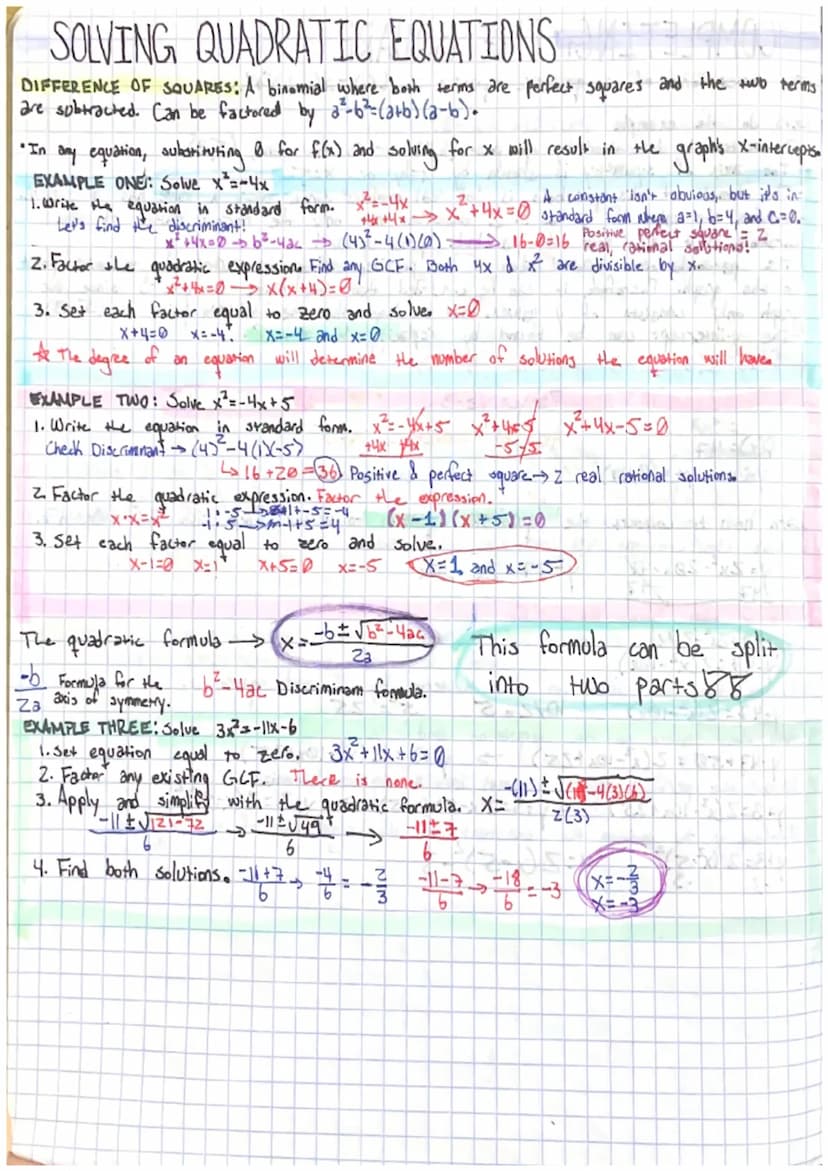 SOLVING QUADRATIC EQUATIONS
DIFFERENCE OF SQUARES: A binomial where both terms are perfect squares and the two terms
are subtracted. Can be factored by a²-b²=(a+b)(a-b).
•In any equation, substituting 0 for f(x) and solving for x will result in the graph's x-intercepts.
EXAMPLE ONE: Solve x²=-4x
1. Write the equation in standard form. x²=-4x → x²+4x=0 A constant isn't obvious, but it's in
+4x +4x standard form where a=1, b=4, and c=0.
Let's find the discriminant!
x²+4x=0 → b²-4ac → (4)²-4(1)(0) → 16-0=16 Positive perfect square = 2
real, rational solutions!
2. Factor the quadratic expression. Find any GCF. Both 4x & x² are divisible by x.
x²+4x=0 → x(x+4)=0
3. Set each factor equal to zero and solve. x=0
x+4=0 x=-4. x=-4 and x=0
☆ The degree of an equation will determine the number of solutions the equation will have.
EXAMPLE TWO: Solve x²=-4x+5
1. Write the equation in standard form. x²=-4x+5 x²+4x=5 x²+4x-5=0
+4x +4x -5 -5
Check Discrimnant → (4)²-4(1)(-5)
↳ 16+20=36 Positive & perfect square → 2 real rational solutions.
2. Factor the quadratic expression. Factor the expression.
x·x=x² 1·-5 → 1+-5=-4 (x-1)(x+5)=0
-1·5 → -1+5=4
3. Set each factor equal to zero and solve.
x-1=0 x=1 x+5=0 x=-5 x=1 and x=-5
The quadratic formula → x= -b±√b²-4ac / 2a
This formula can be split
into two parts
-b/2a Formula for the
axis of symmetry.
b²-4ac Discriminant formula.
EXAMPLE THREE: Solve 3x²=-11x-6
1. Set equation equal to zero. 3x²+11x+6=0
2. Factor any existing GCF. There is none.
3. Apply and simplify with the quadratic formula. x= -(11)±√(11)²-4(3)(6) / 2(3)
-11±√121-72 / 6 → -11±√49 / 6 → -11±7 / 6
4. Find both solutions. -11+7/6 → -4/6 = -2/3 -11-7/6 → -18/6 = -3 x=-2/3
x=-3